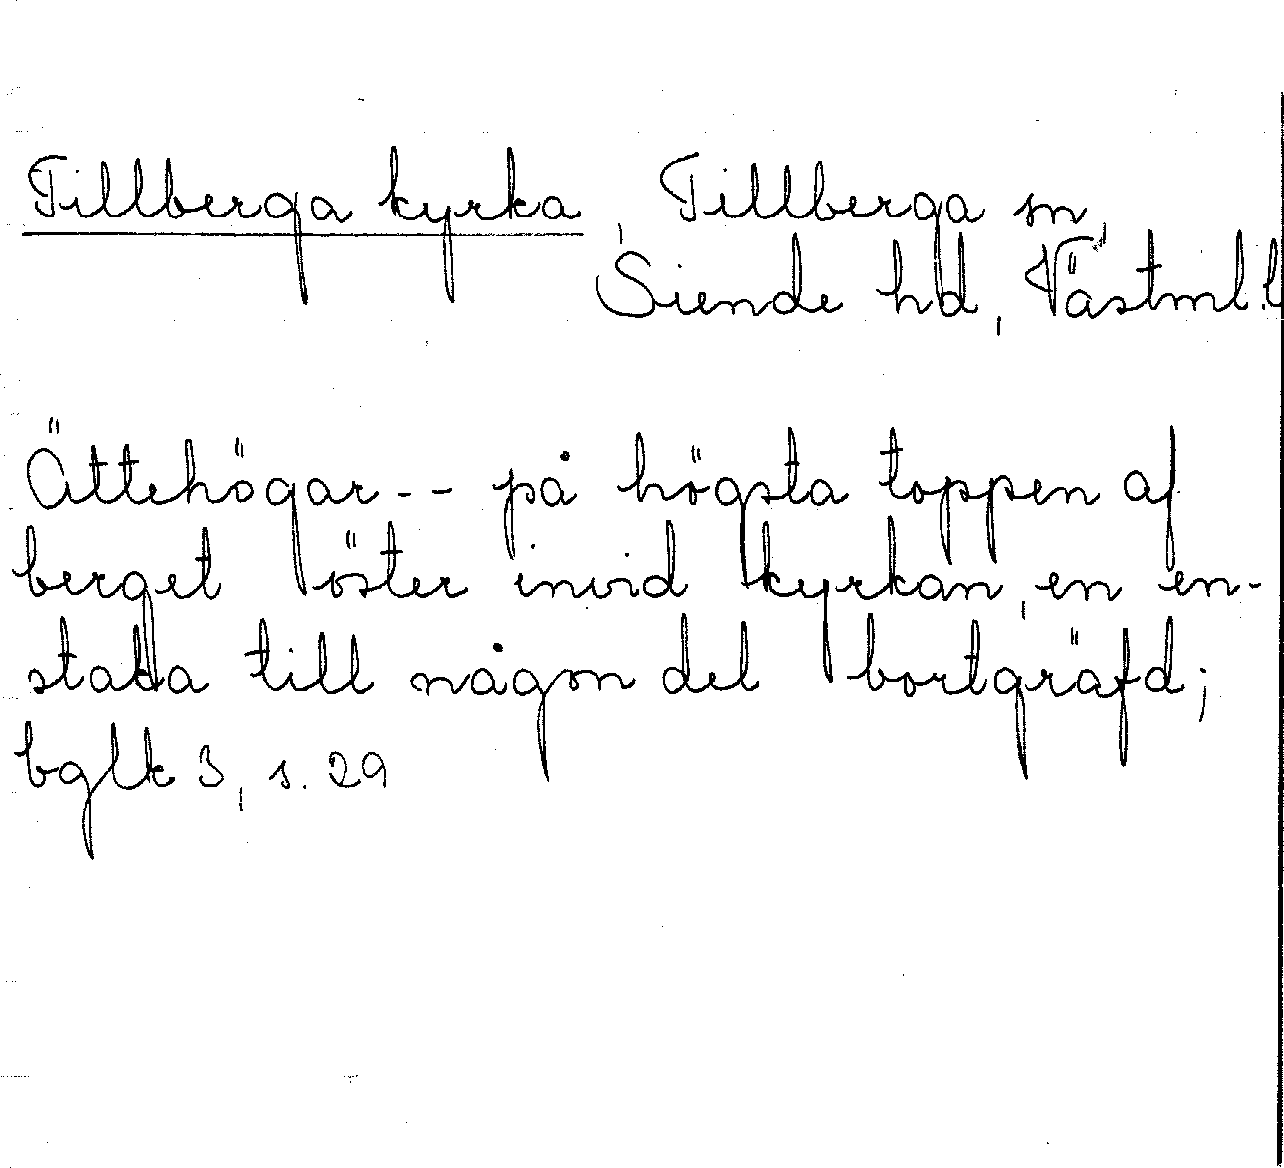 Tillberga kyrka, Tillberga sn,
Siende hd, Västml. l
Ättehögar -- på högsta toppen af
berget öster invid kyrkan, en en-
staka till någon del bortgräfd;
bglk 3, s. 29